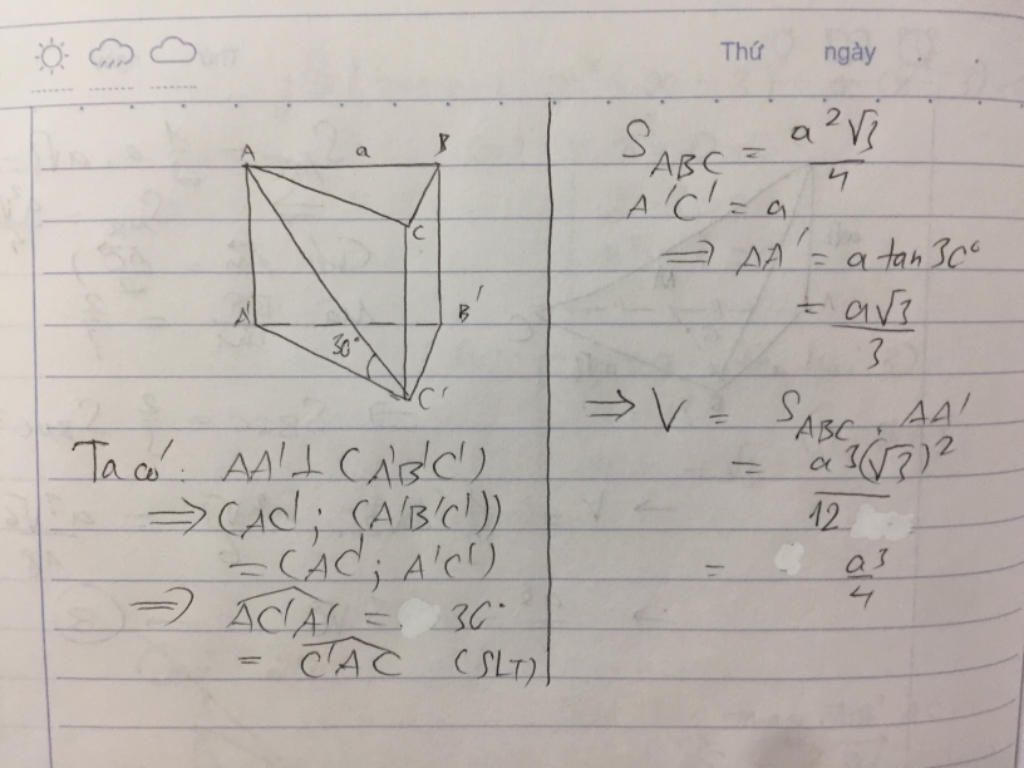 Thứ ngày
A a B
C
A' B'
30°
C'
Ta có: AA' ⊥ (A'B'C')
⇒ (AC'; (A'B'C'))
= (AC'; A'C')
⇒ AC'A' = 30°
= C'AC (SLT)
S_ABC = a²√3/4
A'C' = a
⇒ AA' = a tan 30°
= a√3/3
⇒ V = S_ABC . AA'
= a³(√3)²/12
= a³/4